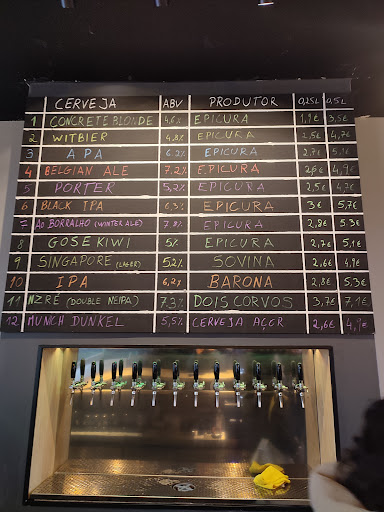 CERVEJA ABV PRODUTOR 0,25L 0,5L
1 CONCRETE BLONDE 4,6% EPICURA 1,9€ 3,5€
2 WITBIER 4.8% EPICURA 2,5€ 4,7€
3 APA 6.2% EPICURA 2,7€ 5.1€
4 BELGIAN ALE 7,2% EPICURA 4,9€
5 PORTER 5,2% EPICURA 2,5€ 4,7€
6 BLACK IPA 6,3% EPICURA 3€ 5,7€
7 AO BORRALHO (WINTER ALE) 7.8% EPICURA 2,8€ 5.3€
8 GOSE KIWI 5% EPICURA 2,7€ 5,1€
9 SINGAPORE (LAGER) 5,2% SOVINA 2,6€ 4,9€
10 IPA 6,2% BARONA 2,8€ 5,3€
11 NZRÉ (DOUBLE NEIPA) 7,3% DOIS CORVOS 3,7€ 7,1€
12 MUNCH DUNKEL 5,5% CERVEJA AÇOR 2,6€ 4,9€